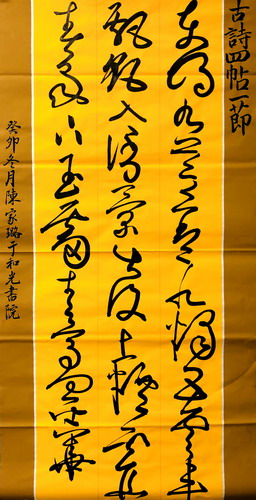 古詩四帖一節
東明九芝蓋北燭五雲車
飄飖入倒景出沒上煙霞
春泉下玉霤青鳥向金華
癸卯冬月陳家璐于和光書院